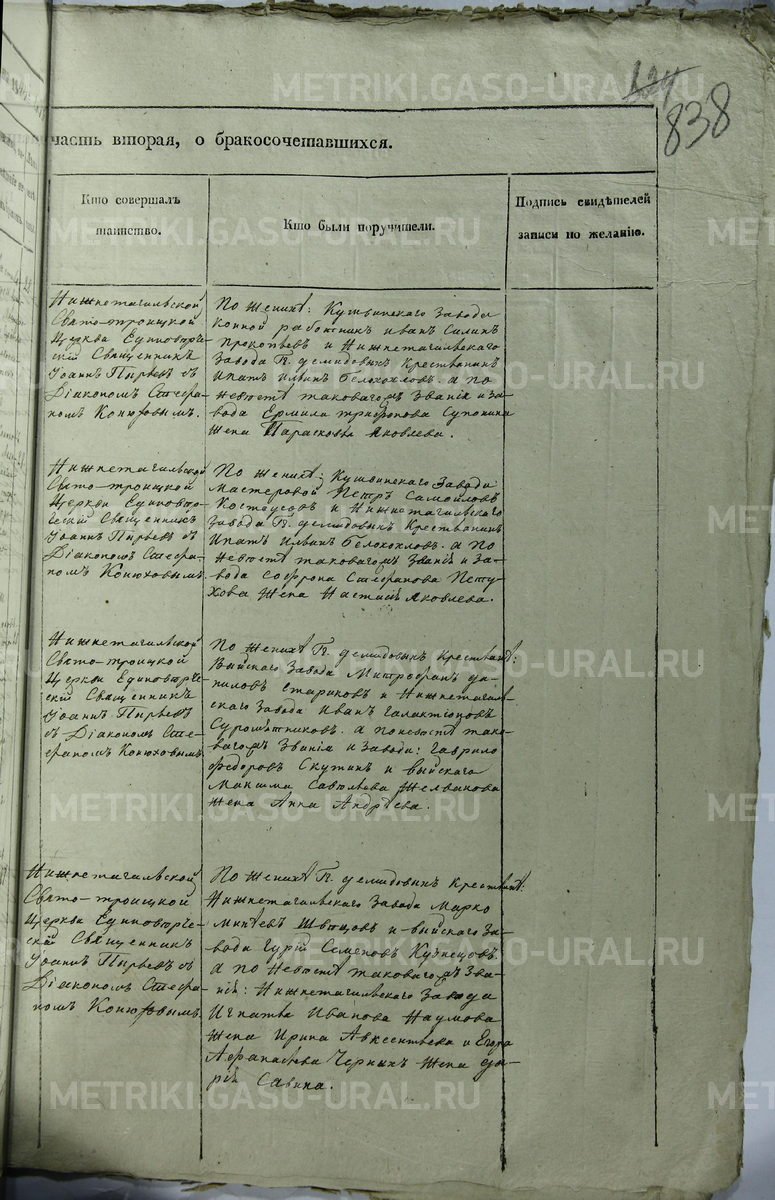 124
838
часть вторая, о бракосочетавшихся.
Кто совершалъ
таинство.
Кто были поручители.
Подпись свидѣтелей
записи по желанію.
Нижнетагильской
Свято-троицкой
Церкви Единовѣрче-
скій Священникъ
Іоаннъ Пырьевъ съ
Діакономъ Стефа-
номъ Конюховымъ.
По женихѣ: Кушвинскаго Завода
конной работникъ иванъ Силинъ
Прокопьевъ и Нижнетагильскаго
Завода Гг. демидовыхъ крестьянинъ
Ипатъ Ильинъ Белохохловъ. а по
невѣстѣ таковагожъ Званія и за-
вода Ермила трифонова Супонина
жена Парасковья Яковлева.
Нижнетагильской
Свято-троицкой
Церкви Единовѣр-
ческій Священникъ
Іоаннъ Пырьевъ съ
Діакономъ Стефа-
номъ Конюховымъ
По женихѣ: Кушвинскаго Завода
мастеровой Петръ Самойловъ
Костоусовъ и Нижнетагильскаго
завода Гг. демидовыхъ Крестьянинъ
Ипатъ Ильинъ Белохохловъ. а по
невѣстѣ таковагожъ Званія и За-
вода софрона Стефанова Пету-
хова жена Настасія Яковлева.
Нижнетагильской
Свято-троицкой
Церкви Единовѣрче-
скій Священникъ
Іоаннъ Пырьевъ
съ Діакономъ Сте-
фаномъ Конюховымъ
По женихѣ Гг. демидовыхъ крестьянѣ:
Выйскаго Завода Митрофанъ да-
ниловъ стариковъ и Нижнетагиль-
скаго Завода Иванъ Галактіоновъ
Суромятниковъ. а по невѣстѣ тако-
вагожъ Званія и Завода: Гаврило
Федоровъ Скутинъ и выйскаго
Максима Савельева
жена Анна Андрѣева.
Нижнетагильской
Свято-троицкой
Церкви Единовѣрче-
скій Священникъ
Іоаннъ Пырьевъ съ
Діакономъ Стефа-
номъ Конюховымъ.
По женихѣ Гг. демидовыхъ крестьянѣ:
Нижнетагильскаго Завода Марко
Минѣевъ Швецовъ и выйскаго За-
вода Гурій Семеновъ Кузнецовъ.
а по Невѣстѣ таковагожъ Зва-
нія: Нижнетагильскаго Завода
Игнатья Иванова Наумова
жена Ирина Авксентьева и Егора
Афанасьева Черныхъ жена да-
рія Савина.
METRIKI.GASO-URAL.RU